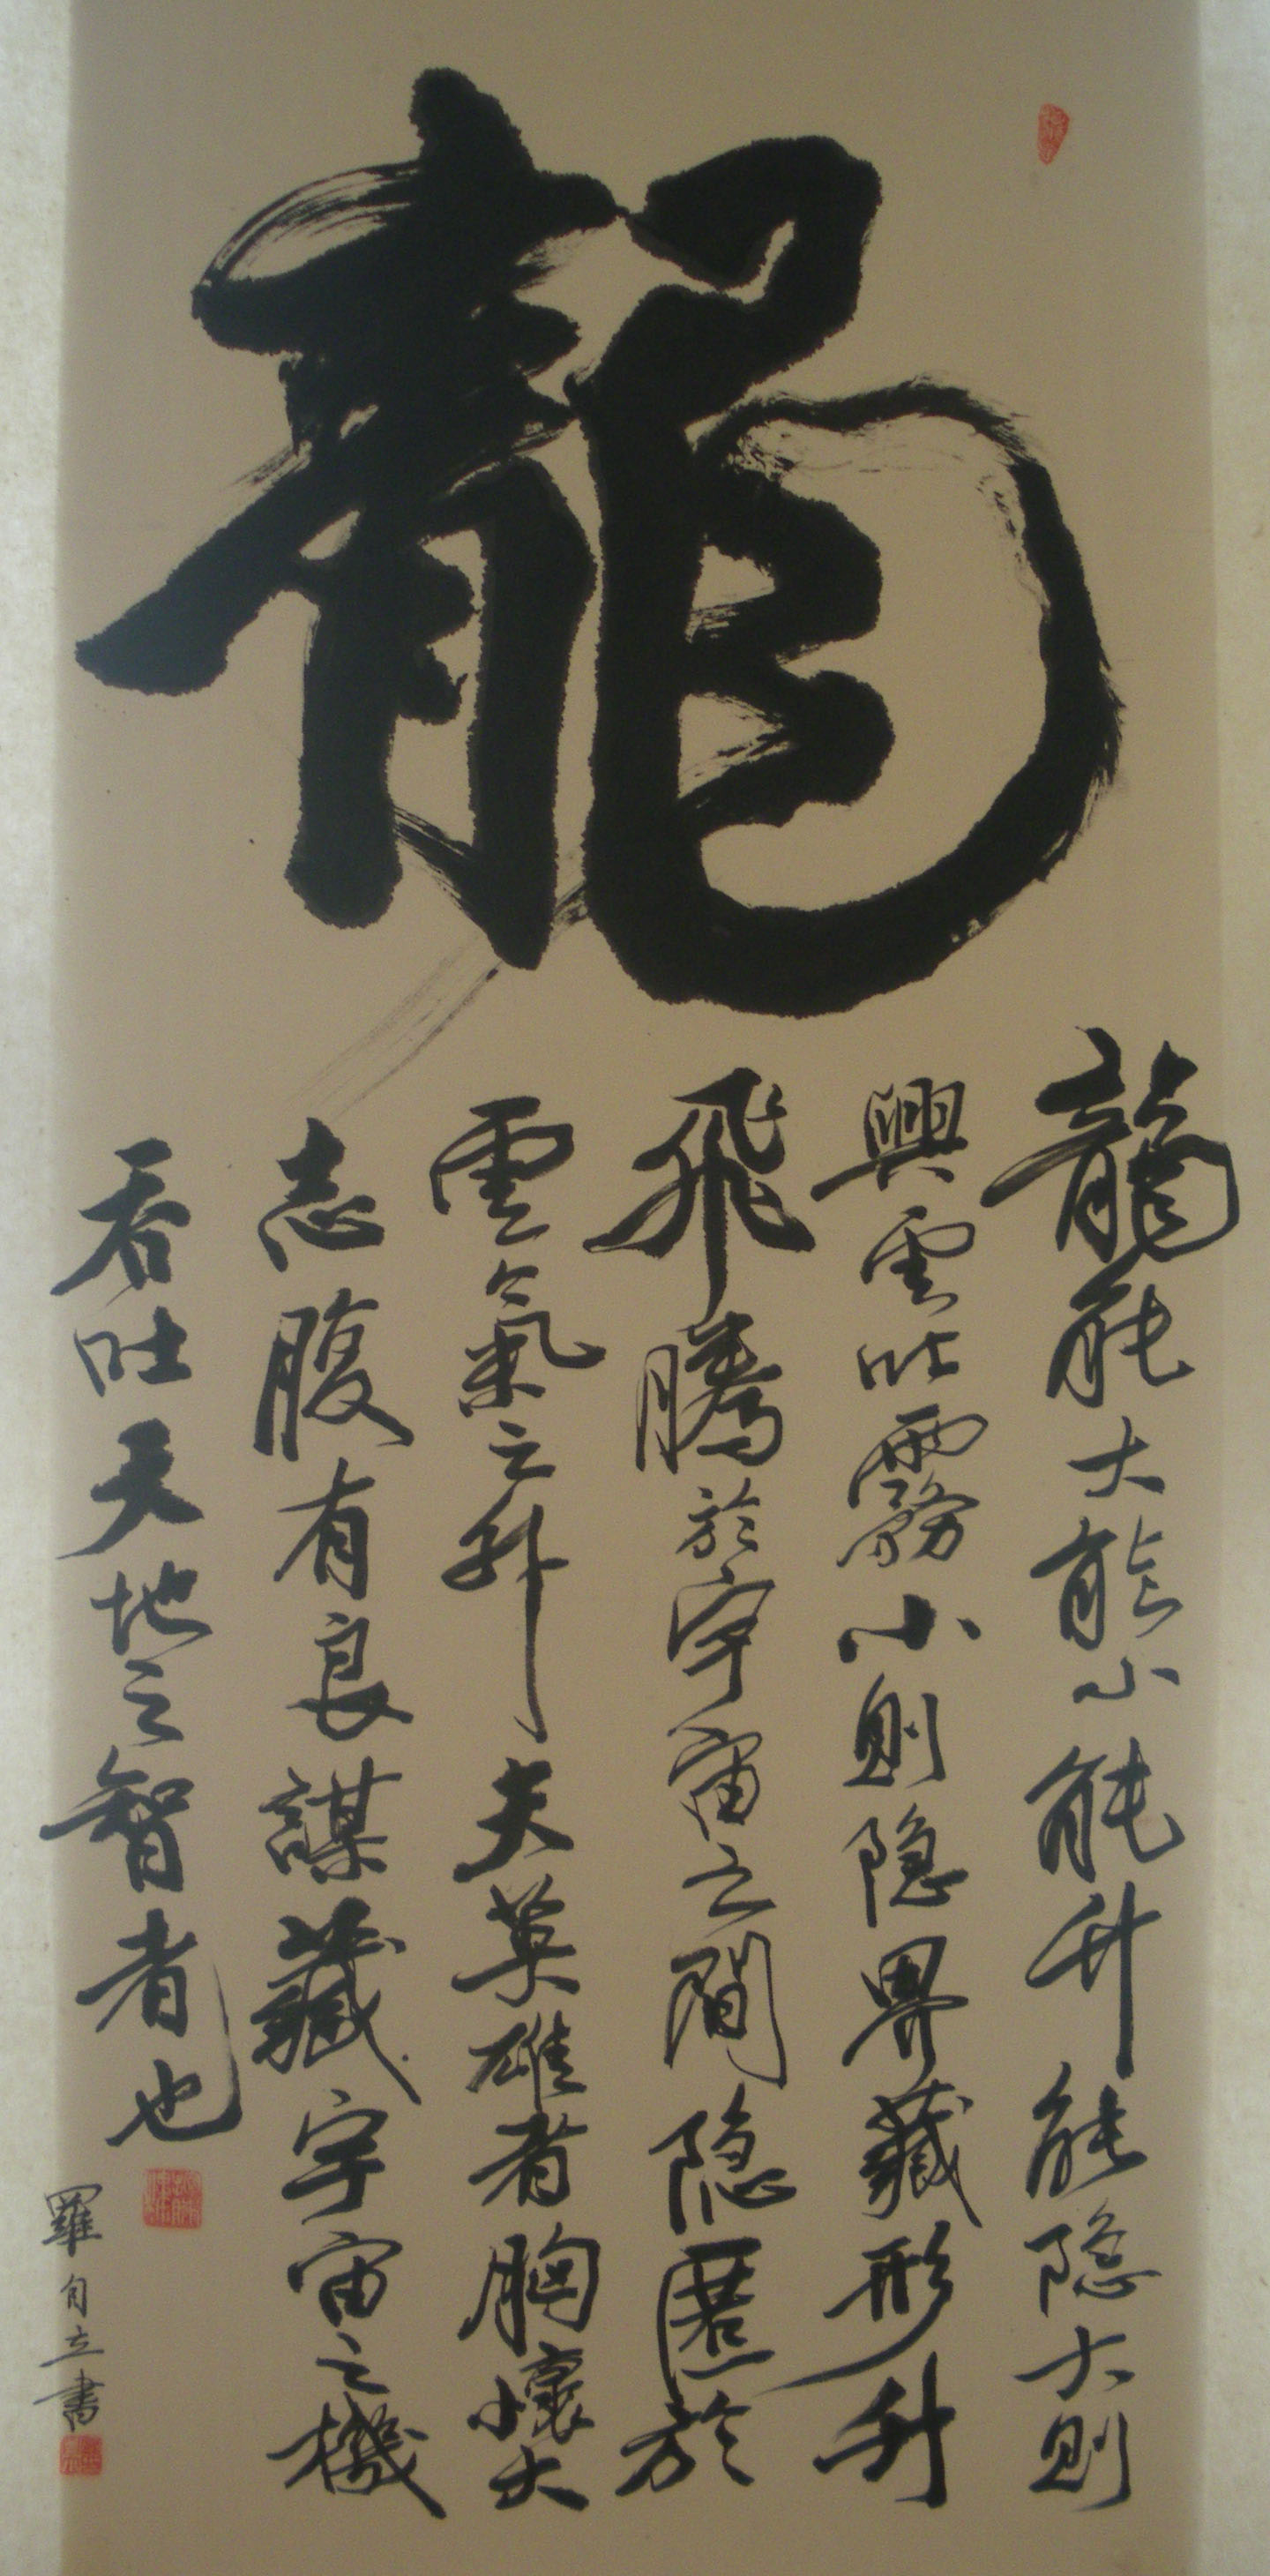 龍
龍能大能小能升能隐大則
興雲吐霧小則隐界藏形升
飛騰於宇宙之間隐匿於
雲氣之升夫英雄者胸懷大
志腹有良謀藏宇宙之機
吞吐天地之智者也
羅自立書